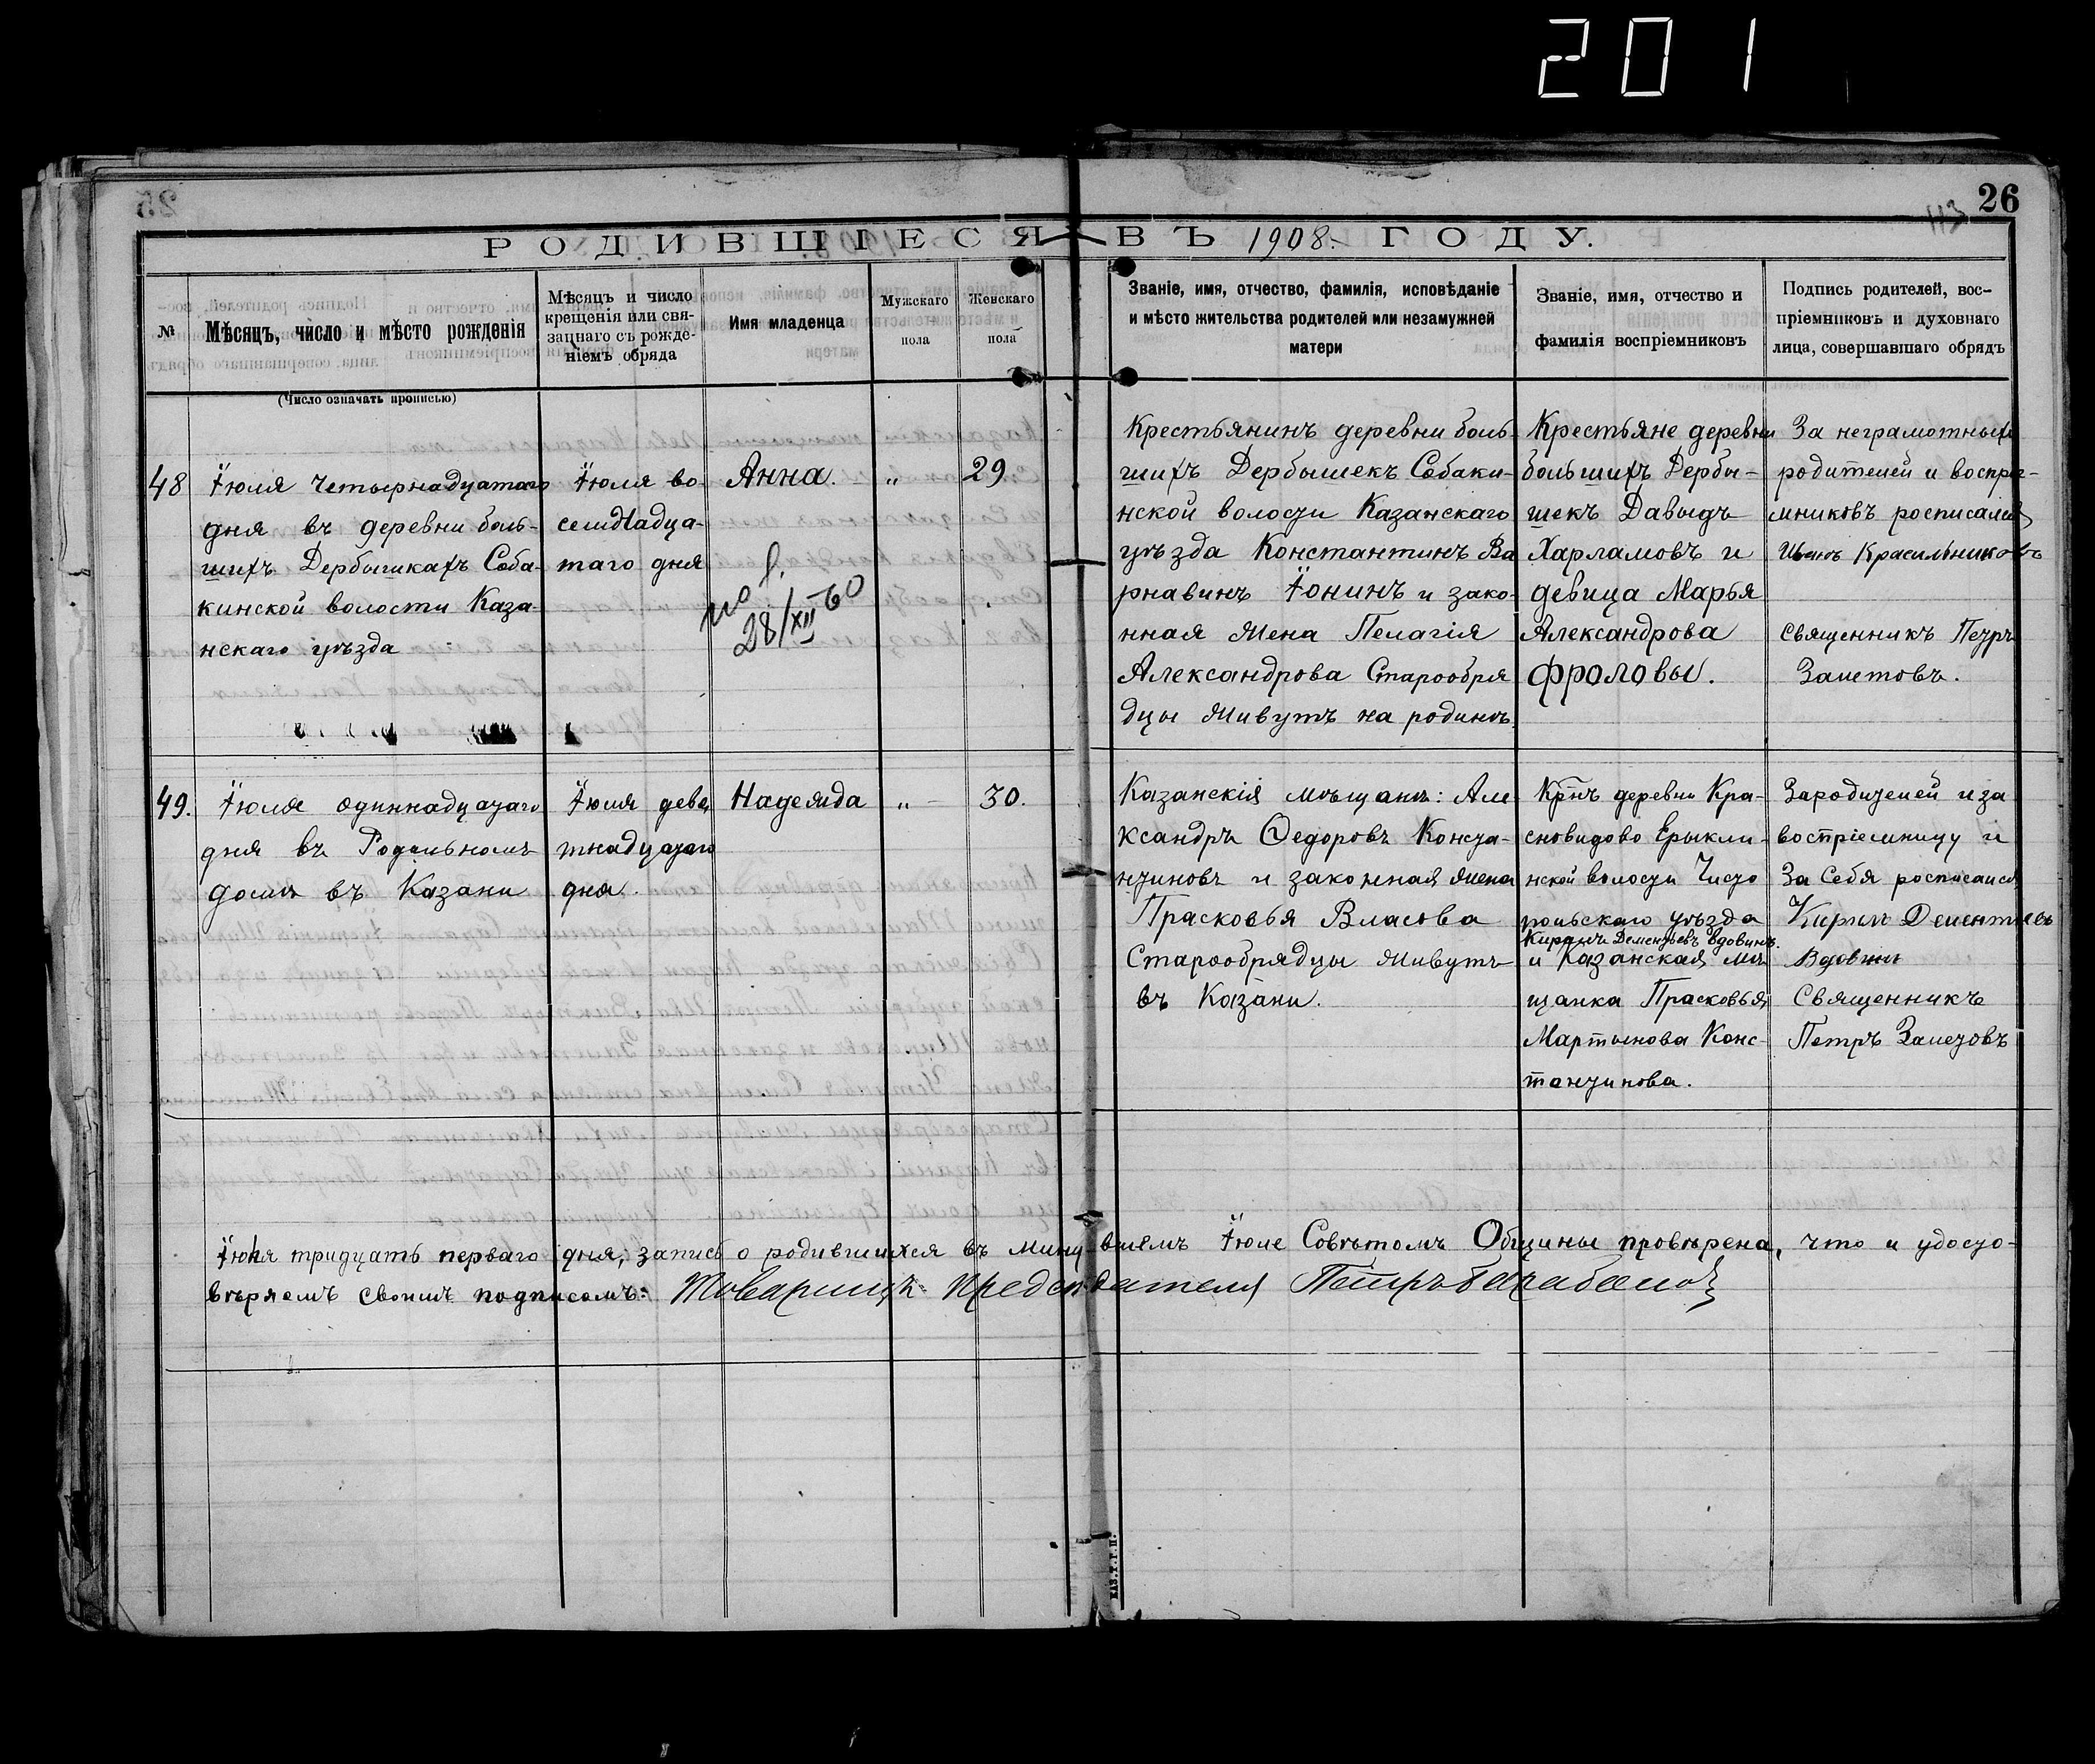 201
26
113
РОДИВШІЕСЯ ВЪ 1908. ГОДУ.
№
Мѣсяцъ, число и мѣсто рожденія
Мѣсяцъ и число
крещенія или свя-
зацнаго съ рожде-
ніемъ обряда
Имя младенца
Мужскаго
пола
Женскаго
пола
Званіе, имя, отчество, фамилія, исповѣданіе
и мѣсто жительства родителей или незамужней
матери
Званіе, имя, отчество и
фамилія воспріемниковъ
Подпись родителей, вос-
пріемниковъ и духовнаго
лица, совершавшаго обрядъ
(Число означать прописью)
48
Іюля четырнадцатаго
дня въ деревни боль-
шихъ Дербышкахъ Соба-
кинской волости Каза-
нскаго уѣзда
Іюля во
семнадца-
таго дня
Анна.
„
29.
28/XII-60
Крестьянинъ деревни боль-
шихъ Дербышекъ Собаки-
нской волости Казанскаго
уѣзда Константинъ Ва
рнавинъ Іонинъ и зако-
нная жена Пелагія
Александрова Старообря
дцы живутъ на родинѣ.
Крестьяне деревни
большихъ Дербы-
шекъ Давыдъ
Харламовъ и
девица Марья
Александрова
Фроловы.
За неграмотныхъ
родителей и воспріе-
мниковъ росписался
Иванъ Красильниковъ
Священникъ Петръ
Залетовъ.
49.
Іюля одиннадцатаго
дня въ Родильномъ
домѣ въ Казани
Іюля девя
тнадцатаго
дня.
Надежда
„
30.
Казанскія мѣщанѣ: Але-
ксандръ Ѳедоровъ Конста-
нтиновъ и законная жена
Прасковья Власова
Старообрядцы живутъ
въ Казани.
Кр̃нъ деревни Кра-
сновидово Ерыкли-
нской волости Чисто
польскаго уѣзда
Кирилъ Дементьевъ Вдовинъ.
и Казанская мѣ
щанка Прасковья
Мартынова Конс-
тантинова.
За родителей и за
воспріемницу и
За Себя росписался
Кирилъ Дементьевъ
Вдовинъ
Священникъ
Петръ Залетовъ
Іюля тридцать перваго дня, запись о родившихся въ мину-вшемъ Іюле Совѣтомъ Общины провѣрена, что и удосто-
вѣряемъ своимъ подписомъ: Товарищъ предсѣдателя Петръ Барабановъ
КАЗ. Т. Г. П.